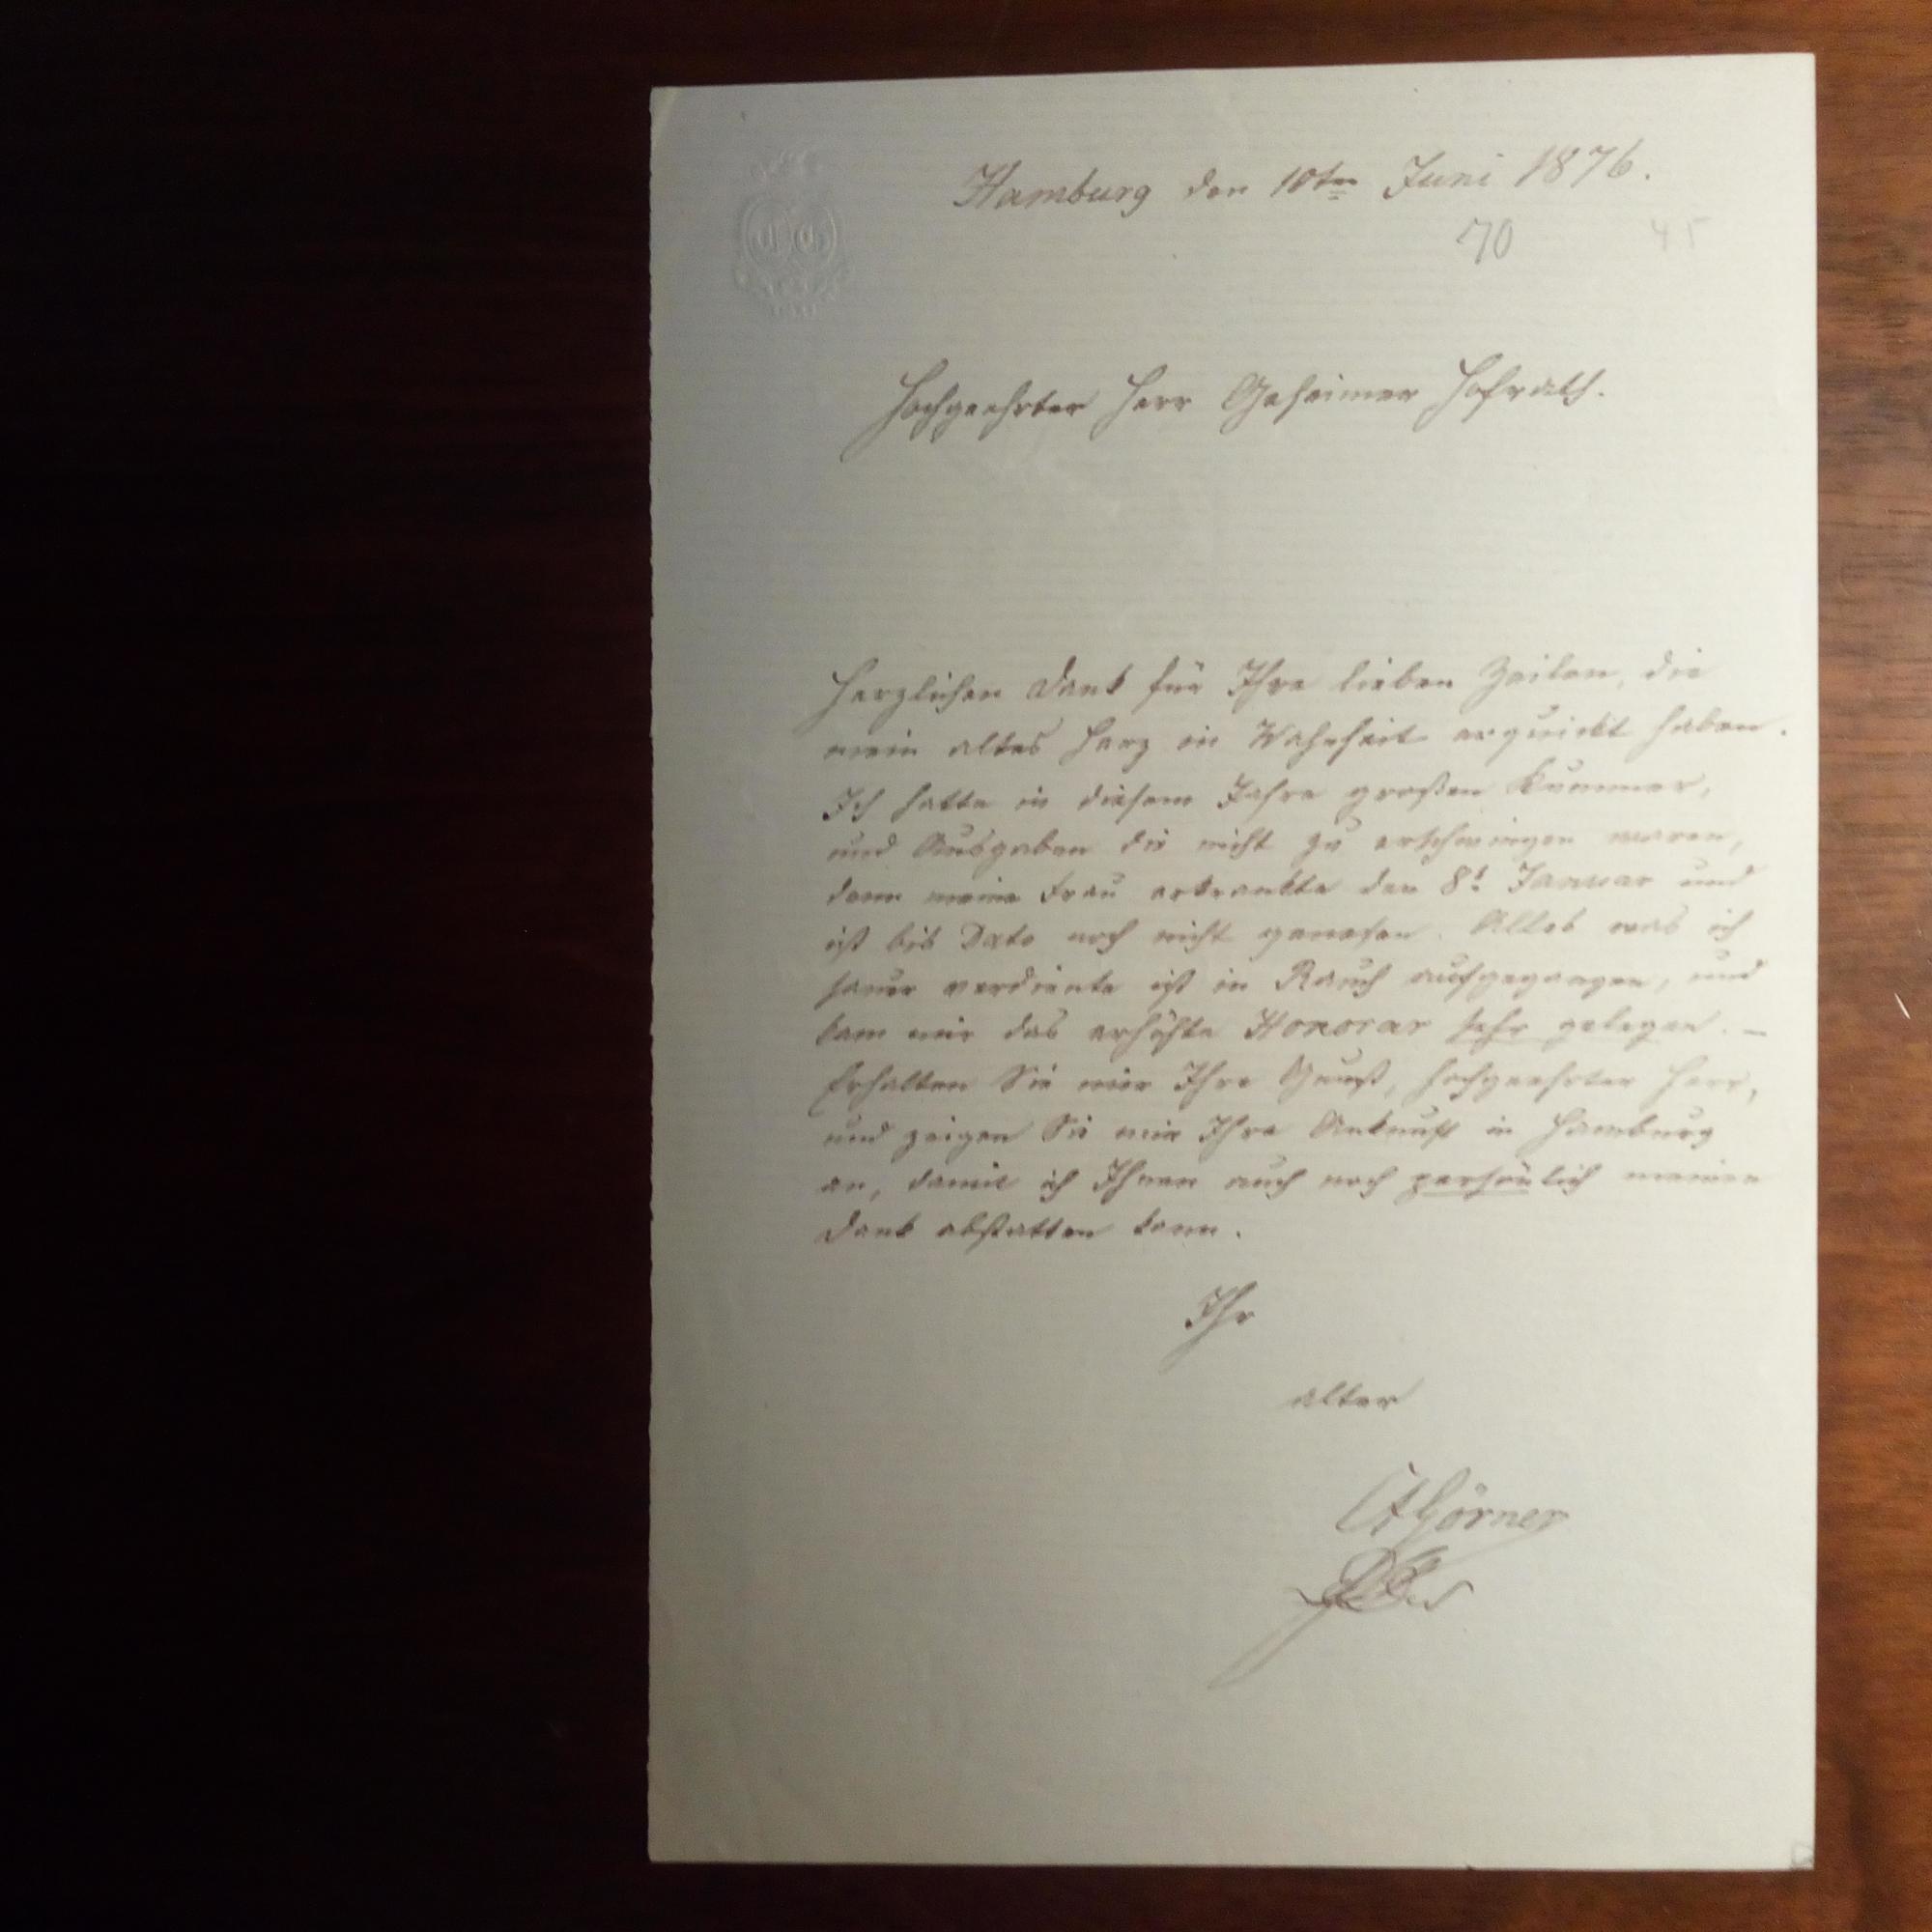 Hamburg den 10ten Juni 1876.
70
45
Hochgeehrter Herr Geheimer Hofrath.
Herzlichen Dank für Ihre lieben Zeilen, die
mein altes Herz in Wahrheit erquickt haben.
Ich hatte in diesem Jahre großen Kummer,
und Ausgaben die nicht zu erschwingen waren,
denn meine Frau erkrankte den 8t Januar und
ist bis Dato noch nicht genesen. Alles was ich
sauer verdiente ist in Rauch aufgegangen, und
kam mir das erhöhte Honorar sehr gelegen. —
Erhalten Sie mir Ihre Gunst, hochgeehrter Herr,
und zeigen Sie mir Ihre Ankunft in Hamburg
an, damit ich Ihnen auch noch persönlich meinen
Dank abstatten kann.
Ihr
alter
CAGörner